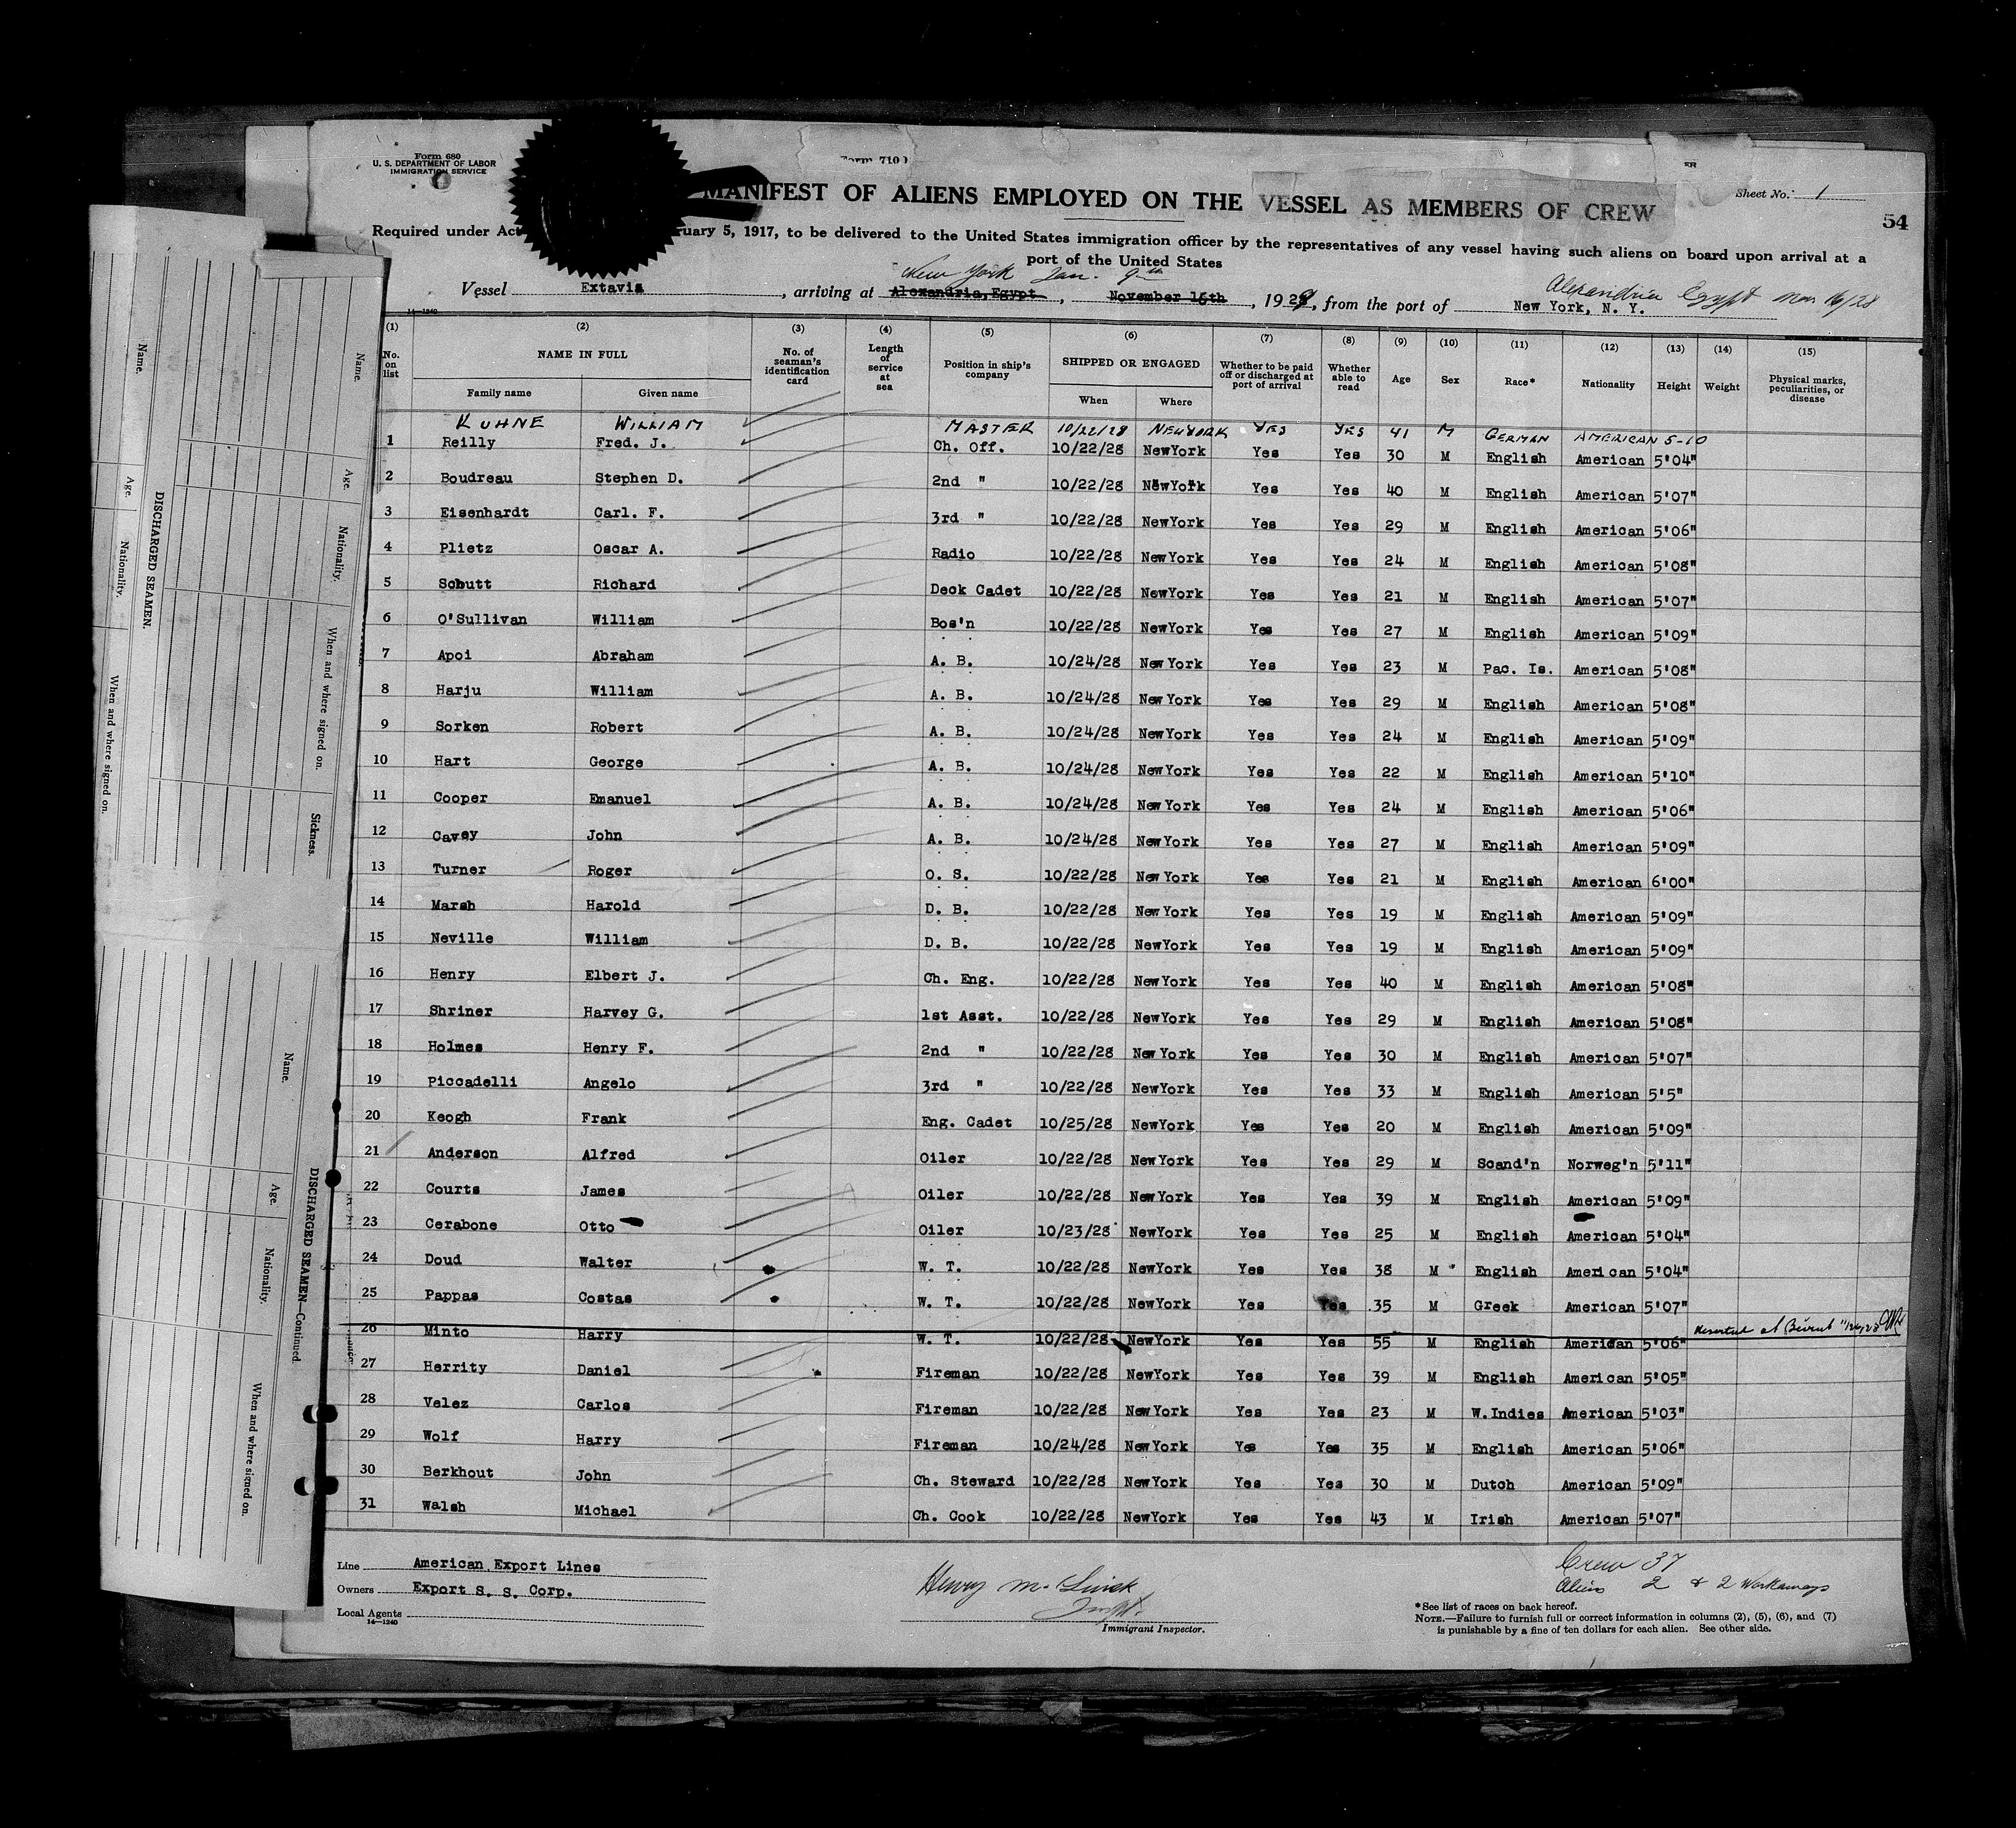 Form 680
U. S. DEPARTMENT OF LABOR
IMMIGRATION SERVICE
Form 710
ER
Sheet No. 1
54
MANIFEST OF ALIENS EMPLOYED ON THE VESSEL AS MEMBERS OF CREW
Required under Act ruary 5, 1917, to be delivered to the United States immigration officer by the representatives of any vessel having such aliens on board upon arrival at a
port of the United States
New York Jan. 9th Alexandria Egypt Nov 16/28
Vessel Extavia, arriving at Alexandria, Egypt, November 16th, 1929, from the port of New York, N. Y.
14—1240
(1) (2) (3) (4) (5) (6) (7) (8) (9) (10) (11) (12) (13) (14) (15)
No. on list NAME IN FULL No. of seaman's identification card Length of service at sea Position in ship's company SHIPPED OR ENGAGED Whether to be paid off or discharged at port of arrival Whether able to read Age Sex Race* Nationality Height Weight Physical marks, peculiarities, or disease
Family name Given name When Where
KUHNE WILLIAM MASTER 10/22/28 NEWYORK YES YES 41 M GERMAN AMERICAN 5-10
1 Reilly Fred. J. Ch. Off. 10/22/28 NewYork Yes Yes 30 M English American 5'04"
2 Boudreau Stephen D. 2nd " 10/22/28 NewYork Yes Yes 40 M English American 5'07"
3 Eisenhardt Carl. F. 3rd " 10/22/28 NewYork Yes Yes 29 M English American 5'06"
4 Plietz Oscar A. Radio 10/22/28 NewYork Yes Yes 24 M English American 5'08"
5 Schutt Richard Deck Cadet 10/22/28 NewYork Yes Yes 21 M English American 5'07"
6 O'Sullivan William Bos'n 10/22/28 NewYork Yes Yes 27 M English American 5'09"
7 Apoi Abraham A. B. 10/24/28 New York Yes Yes 23 M Pac. Is. American 5'08"
8 Harju William A. B. 10/24/28 New York Yes Yes 29 M English American 5'08"
9 Sorken Robert A. B. 10/24/28 NewYork Yes Yes 24 M English American 5'09"
10 Hart George A. B. 10/24/28 NewYork Yes Yes 22 M English American 5'10"
11 Cooper Emanuel A. B. 10/24/28 New York Yes Yes 24 M English American 5'06"
12 Cavey John A. B. 10/24/28 NewYork Yes Yes 27 M English American 5'09"
13 Turner Roger O. S. 10/22/28 New York Yes Yes 21 M English American 6'00"
14 Marsh Harold D. B. 10/22/28 New York Yes Yes 19 M English American 5'09"
15 Neville William D. B. 10/22/28 NewYork Yes Yes 19 M English American 5'09"
16 Henry Elbert J. Ch. Eng. 10/22/28 NewYork Yes Yes 40 M English American 5'08"
17 Shriner Harvey G. 1st Asst. 10/22/28 NewYork Yes Yes 29 M English American 5'08"
18 Holmes Henry F. 2nd " 10/22/28 New York Yes Yes 30 M English American 5'07"
19 Piccadelli Angelo 3rd " 10/22/28 NewYork Yes Yes 33 M English American 5'5"
20 Keogh Frank Eng. Cadet 10/25/28 NewYork Yes Yes 20 M English American 5'09"
21 Anderson Alfred Oiler 10/22/28 NewYork Yes Yes 29 M Scand'n Norweg'n 5'11"
22 Courts James Oiler 10/22/28 NewYork Yes Yes 39 M English American 5'09"
23 Cerabone Otto Oiler 10/23/28 NewYork Yes Yes 25 M English American 5'04"
24 Doud Walter W. T. 10/22/28 NewYork Yes Yes 38 M English American 5'04"
25 Pappas Costas W. T. 10/22/28 NewYork Yes Yes 35 M Greek American 5'07"
26 Minto Harry W. T. 10/22/28 NewYork Yes Yes 55 M English American 5'06" Deserted at Beirut
27 Herrity Daniel Fireman 10/22/28 NewYork Yes Yes 39 M English American 5'05"
28 Velez Carlos Fireman 10/22/28 New York Yes Yes 23 M W.Indies American 5'03"
29 Wolf Harry Fireman 10/24/28 New York Yes Yes 35 M English American 5'06"
30 Berkhout John Ch. Steward 10/22/28 NewYork Yes Yes 30 M Dutch American 5'09"
31 Walsh Michael Ch. Cook 10/22/28 NewYork Yes Yes 43 M Irish American 5'07"
Line American Export Lines
Owners Export S. S. Corp.
Local Agents
14—1240
Immigrant Inspector.
Crew 37
Aliens 2 & 2 Workaways
*See list of races on back hereof.
NOTE.—Failure to furnish full or correct information in columns (2), (5), (6), and (7)
is punishable by a fine of ten dollars for each alien. See other side.
DISCHARGED SEAMEN.
Name. Age. Nationality. When and where signed on.
Name. Age. Nationality. When and where signed on. Sickness.
DISCHARGED SEAMEN—Continued.
Name. Age. Nationality. When and where signed on.